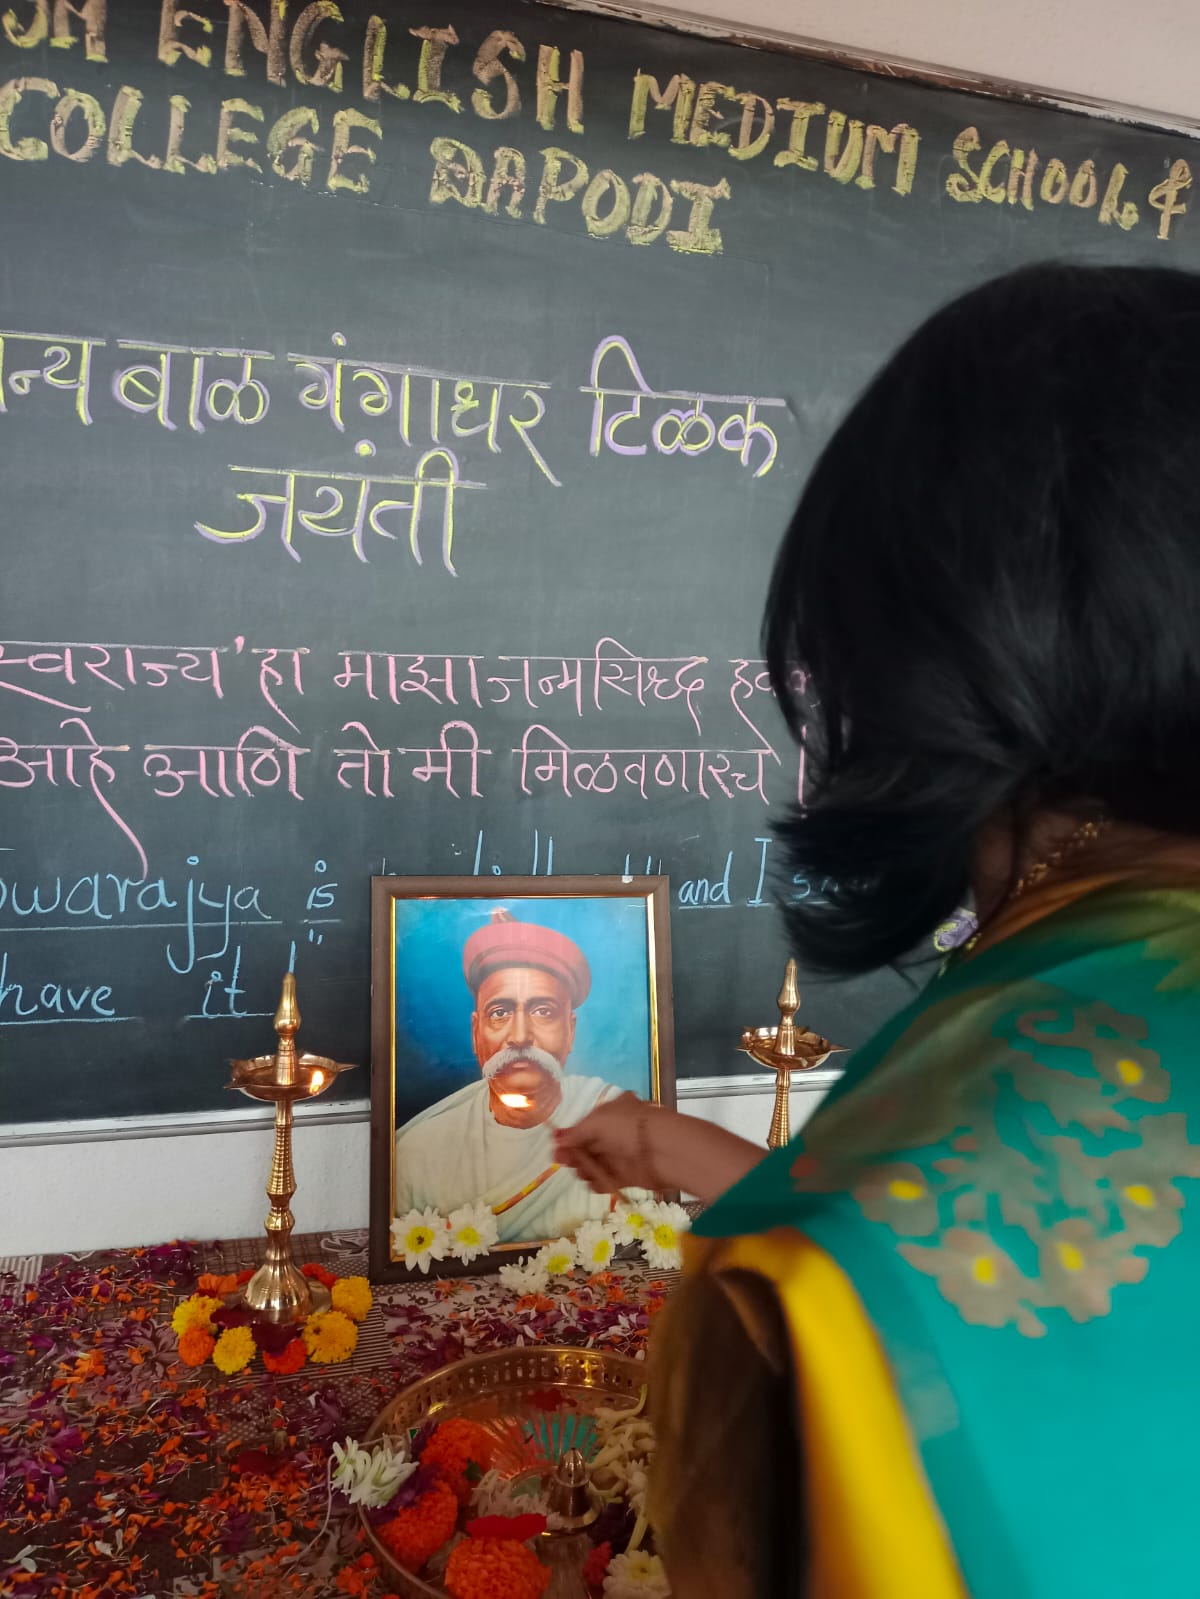 ENGLISH MEDIUM SCHOOL &
COLLEGE DAPODI
बाळ गंगाधर टिळक
जयंती
स्वराज्य' हा माझा जन्मसिध्द
आहे आणि तो मी मिळवणारच।
Swarajya is and I
have it !"